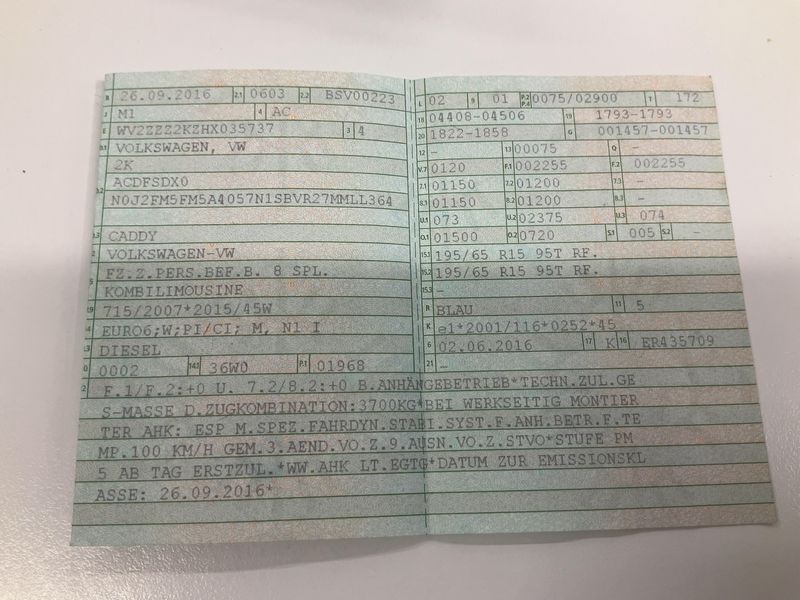 B 26.09.2016 2.1 0603 2.2 BSV00223
J M1 4 AC
E WV2ZZZ2KZHX035737 3 4
D.1 VOLKSWAGEN, VW
2K
D.2 ACDFSDX0
N0J2FM5FM5A4057N1SBVR27MMLL364
D.3 CADDY
2 VOLKSWAGEN-VW
5 FZ.Z.PERS.BEF.B. 8 SPL.
KOMBILIMOUSINE
V.9 715/2007*2015/45W
14 EURO6;W;PI/CI; M, N1 I
P.3 DIESEL
10 0002 14.1 36W0 P.1 01968
L 02 9 01 P.2 P.4 0075/02900 T 172
18 04408-04506 19 1793-1793
20 1822-1858 G 001457-001457
12 – 13 00075 Q –
V.7 0120 F.1 002255 F.2 002255
7.1 01150 7.2 01200 7.3 –
8.1 01150 8.2 01200 8.3 –
U.1 073 U.2 02375 U.3 074
O.1 01500 O.2 0720 S.1 005 S.2 –
15.1 195/65 R15 95T RF.
15.2 195/65 R15 95T RF.
15.3 –
R BLAU 11 5
K e1*2001/116*0252*45
6 02.06.2016 17 K 16 ER435709
21 –
22 F.1/F.2:+0 U. 7.2/8.2:+0 B.ANHÄNGEBETRIEB*TECHN.ZUL.GE
S-MASSE D.ZUGKOMBINATION:3700KG*BEI WERKSEITIG MONTIER
TER AHK: ESP M.SPEZ.FAHRDYN.STABI.SYST.F.ANH.BETR.F.TE
MP.100 KM/H GEM.3.AEND.VO.Z.9.AUSN.VO.Z.STVO*STUFE PM
5 AB TAG ERSTZUL.*WW.AHK LT.EGTG*DATUM ZUR EMISSIONSKL
ASSE: 26.09.2016*